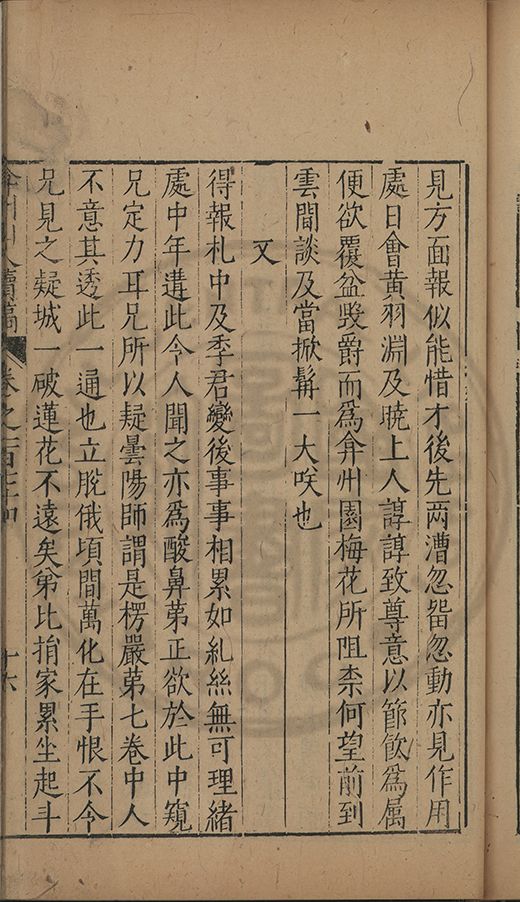 見方面報似能惜才後先两漕忽畱忽動亦見作用
處日㑹黄羽淵及暁上人諄諄致尊意以節飲爲属
便欲覆盆毁爵而爲弇州園梅花所阻柰何望前到
雲間談及當掀髯一大咲也
又
得報札中及季君變後事事相累如糺絲無可理緒
處中年遘此令人聞之亦爲酸鼻苐正欲於此中窺
兄定力耳兄所以疑曇陽師謂是楞嚴苐七卷中人
不意其透此一通也立脱俄頃間萬化在手恨不令
兄見之疑城一破蓮花不逺矣弟比捐家累坐起斗
弇州山人續稿 卷之一百
十六